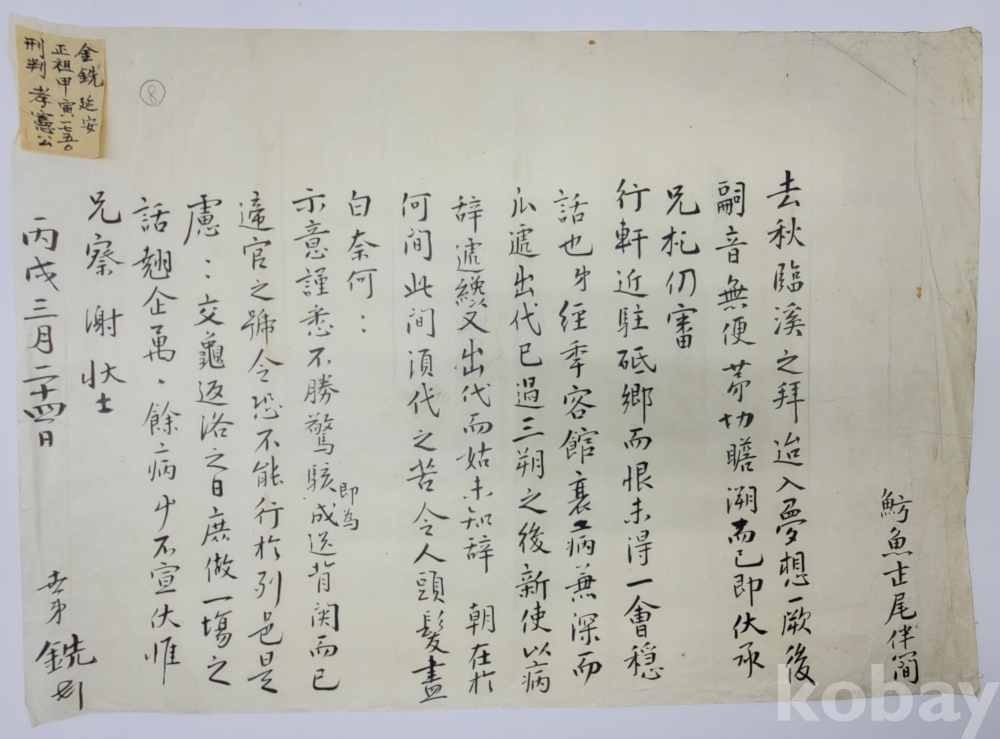 鲂魚壹尾伴簡
去秋臨溪之拜迨入夢想一厥後
嗣音無便苐切瞻溯而已即伏承
兄札仍審
行軒近駐砥鄉而恨未得一會穩
話也弟經年客館衰病兼深而
瓜遞出代已過三朔之後新使以病
辞遞纔又出代而姑未知辞 朝在於
何間此間須代之苦令人頭髮盡
白奈何:
示意謹悉不勝驚駭即為成送背関而已
違官之號令恐不能行於列邑是
慮:交龜返洛之日庶做一場之
話翹企萬、餘病中不宣伏惟
兄察 謝狀上
丙戌三月二十四日
世弟 銑 頓
金銑 延安
正祖甲寅一七五〇
刑判 孝憲公
8
kobay